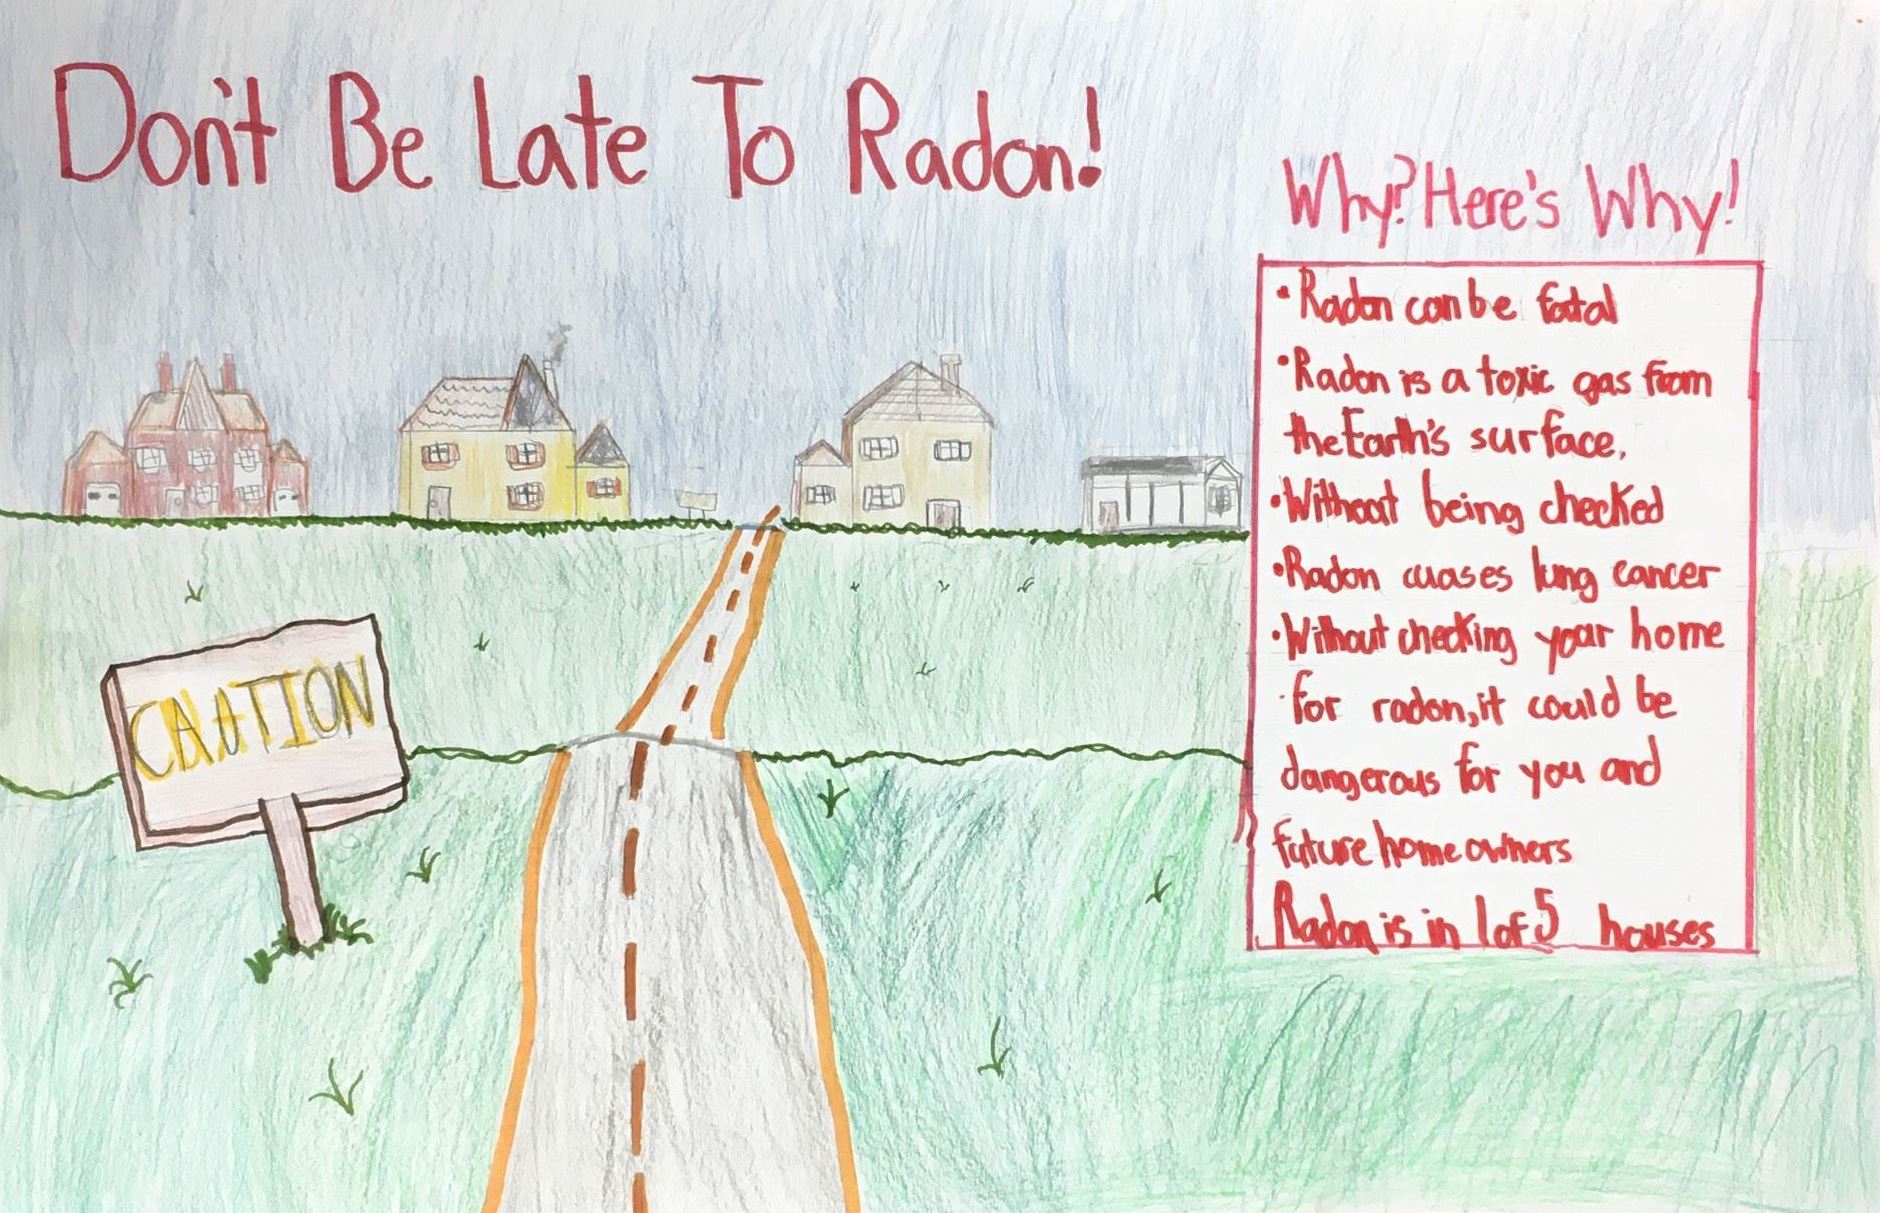 Don't Be Late To Radon!
Why? Here's Why!
• Radon can be fatal
• Radon is a toxic gas from
the Earth's surface.
• Without being checked
• Radon cuases lung cancer
• Without checking your home
for radon, it could be
dangerous for you and
future home owners
Radon is in 1 of 5 houses
CAUTION